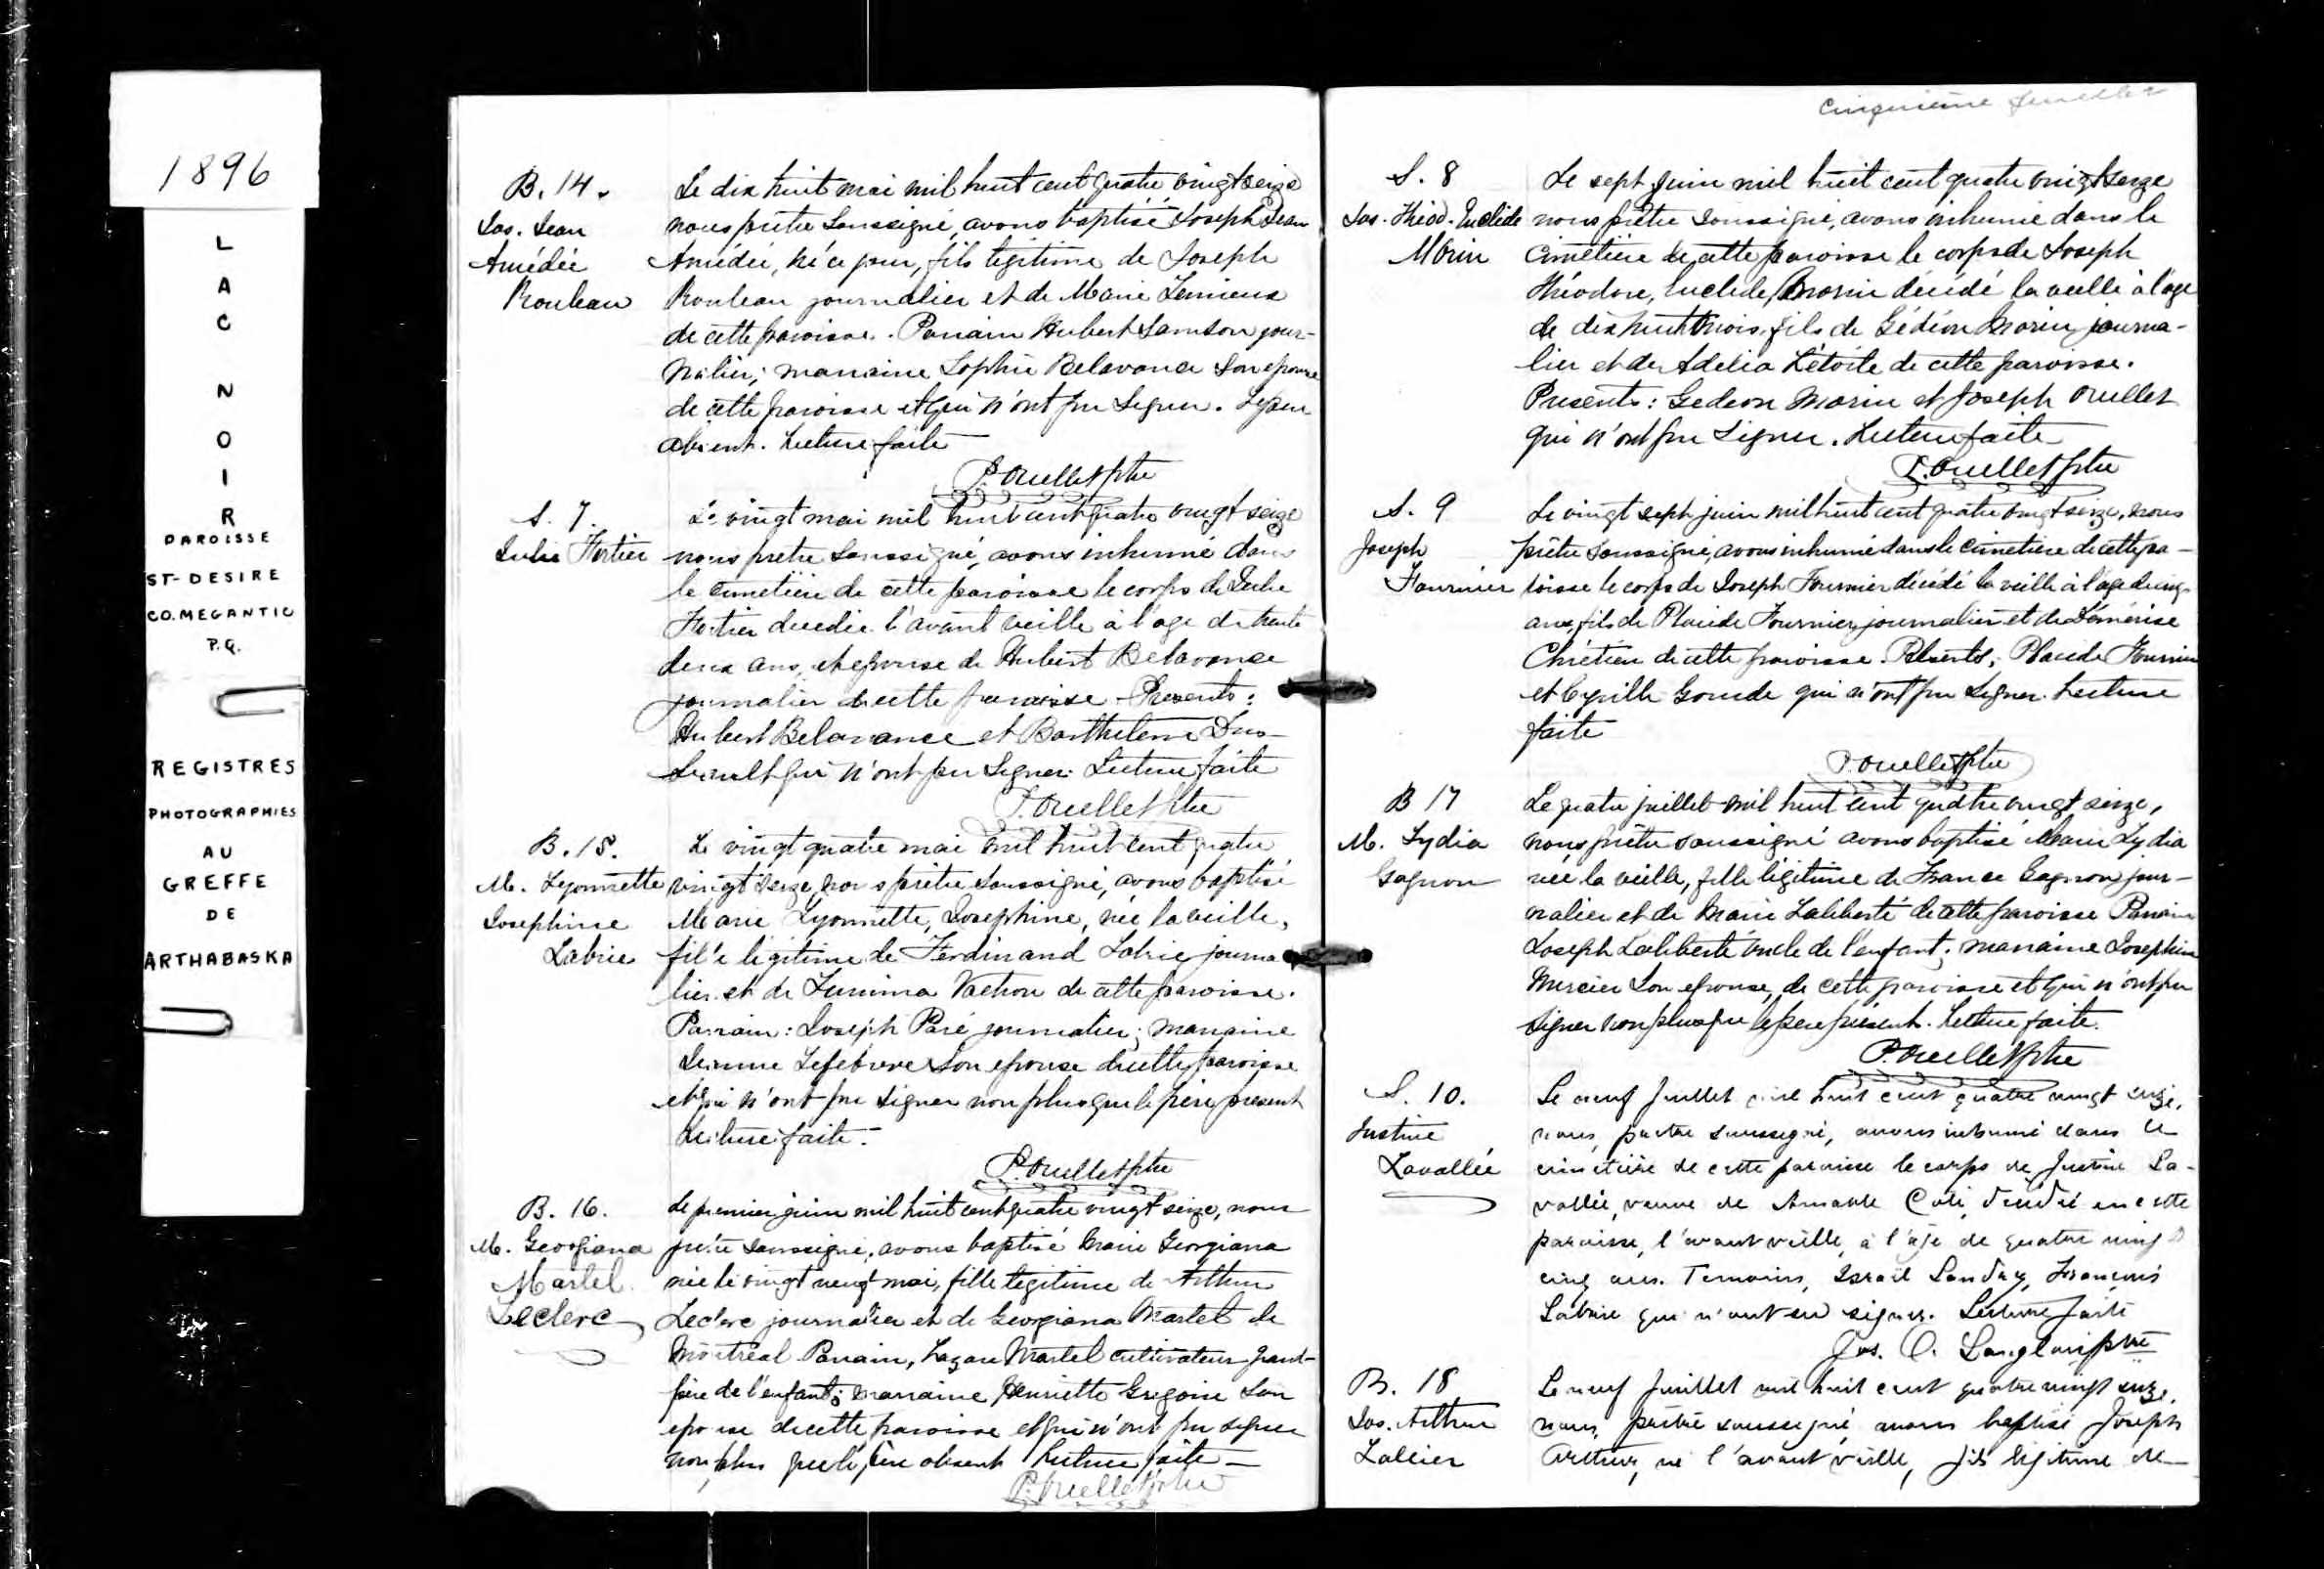 1896
L
A
C
N
O
I
R
PAROISSE
ST-DESIRE
CO. MEGANTIC
P.Q.
REGISTRES
PHOTOGRAPHIES
AU
GREFFE
DE
ARTHABASKA
B. 14.
Jos. Jean
Amédée
Rouleau
Le dix huit mai mil huit cent quatre vingt seize
nous prêtre soussigné, avons baptisé Joseph Jean
Amédée, né ce jour, fils légitime de Joseph
Rouleau journalier et de Marie Lemieux
de cette paroisse. Parrain Hubert Samson jour-
nalier; marraine Sophie Belavance son epouse
de cette paroisse et qui n'ont pu signer. Le père
absent. Lecture faite
P. Ouellet ptre
S. 7.
Julie Fortier
Le vingt mai mil huit cent quatre vingt seize
nous pretre soussigné, avons inhumé dans
le cimetière de cette paroisse le corps de Julie
Fortier decedée l'avant veille à l'age de trente
deux ans, et epouse de Hubert Belavance
journalier de cette paroisse. Presents:
Hubert Belavance et Barthelemi Dus-
seault qui n'ont pu signer. Lecture faite
P. Ouellet ptre
B. 15.
M. Lyonnette
Josephine
Labrie
Le vingt quatre mai mil huit cent quatre
vingt seize, nous prêtre soussigné, avons baptisé
Marie Lyonnette, Josephine, née la veille,
fille légitime de Ferdinand Labrie journa
lier et de Vachon de cette paroisse.
Parrain: Joseph Paré journalier; marraine
Lefebvre son epouse de cette paroisse
et qui n'ont pu signer non plus que le père présent
Lecture faite.
P. Ouellet ptre
B. 16.
M. Georgiana
Martel
Leclerc
Le premier juin mil huit cent quatre vingt seize, nous
prêtre soussigné, avons baptisé Marie Georgiana
née le vingt neuf mai, fille légitime de Arthur
Leclerc journalier et de Georgiana Martel de
Montréal Parrain, Lazare Martel cultivateur grand-
père de l'enfant; marraine Henriette Gregoire son
epouse de cette paroisse et qui n'ont pu signer
non plus que le père absent Lecture faite
P. Ouellet ptre
cinquième feuillet
S. 8
Jos. Théod. Euclide
Morin
Le sept juin mil huit cent quatre vingt seize
nous prêtre soussigné, avons inhumé dans le
cimetière de cette paroisse le corps de Joseph
Théodore, Euclide, Morin décédé la veille à l'age
de dix huit mois, fils de Gédéon Morin journa-
lier et de Adelia Létoile de cette paroisse.
Presents: Gedeon Morin et Joseph Ouellet
qui n'ont pu signer. Lecture faite
P. Ouellet ptre
S. 9
Joseph
Fournier
Le vingt sept juin mil huit cent quatre vingt seize, nous
prêtre soussigné, avons inhumé dans le cimetiere de cette pa-
roisse le corps de Joseph Fournier décédé la veille à l'age de cinq
ans, fils de Placide Fournier, journalier et de Démérise
Chrétien de cette paroisse. Présents; Placide Fournier
et Cyrille qui n'ont pu signer. Lecture
faite
P. Ouellet ptre
B 17
M. Lydia
Gagnon
Le quatre juillet mil huit cent quatre vingt seize,
nous prêtre soussigné avons baptisé Marie Lydia
née la veille, fille légitime de France Gagnon jour-
nalier et de Marie Laliberté de cette paroisse Parrain
Joseph Laliberté oncle de l'enfant; marraine Josephine
Mercier son epouse, de cette paroisse et qui n'ont pu
signer non plus que le père présent. Lecture faite.
P. Ouellet ptre
S. 10.
Justine
Lavallée
Le neuf Juillet mil huit cent quatre vingt seize,
nous, prêtre soussigné, avons inhumé dans le
cimetière de cette paroisse le corps de Justine La-
vallée, veuve de Amable Coté, décédé en cette
paroisse, l'avant veille, à l'âge de quatre vingt
cinq ans. Temoins, Israël Landry, François
Labrie qui n'ont su signer. Lecture faite
Jos. O. Langlois ptre
B. 18
Jos. Arthur
Lallier
Le neuf Juillet mil huit cent quatre vingt seize,
nous, prêtre soussigné, avons baptisé Joseph
Arthur, né l'avant veille, fils légitime de